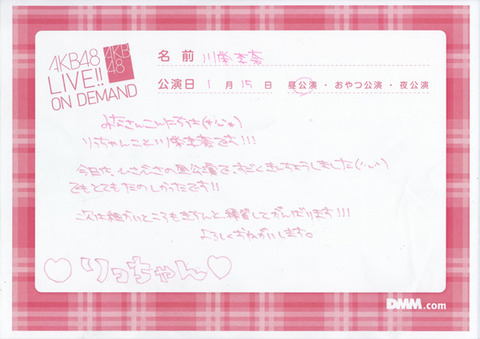 AKB48
LIVE!!
ON DEMAND
AKB
48
名前 川栄李奈
公演日 1月15日 昼公演・おやつ公演・夜公演
みなさんこんにちわ(*'-'*)
りっちゃんこと川栄李奈です!!!
今日は、ひさびさの公演で、すごくきんちょうしました
でもとてもたのしかったです!!
次は細かいところもきちんと練習してがんばります!!!
よろしくおねがいします。
♡りっちゃん♡
DMM.com